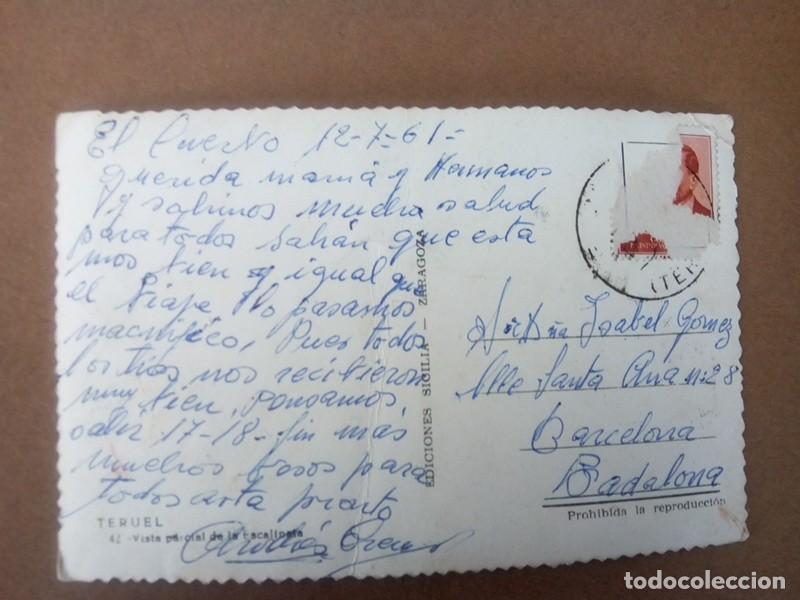 El Cuervo 12-7-61=
Querida mamá y Hermanos
y sobrinos mucha salud
para todos Sabrán que esta
mos bien y igual que
el biaje lo pasamos
macnifico, Pues todos
los tios nos recibieron
muy bien, pensamos
salir 17-18- sin más
muchos besos para
todos asta pronto
TERUEL
42 -Vista parcial de la Escalinata
EDICIONES SICILIA — ZARAGOZA
(TER
Isabel Gomez
Calle Santa Ana n: 28
Barcelona
Badalona
Prohibida la reproducción
todocoleccion